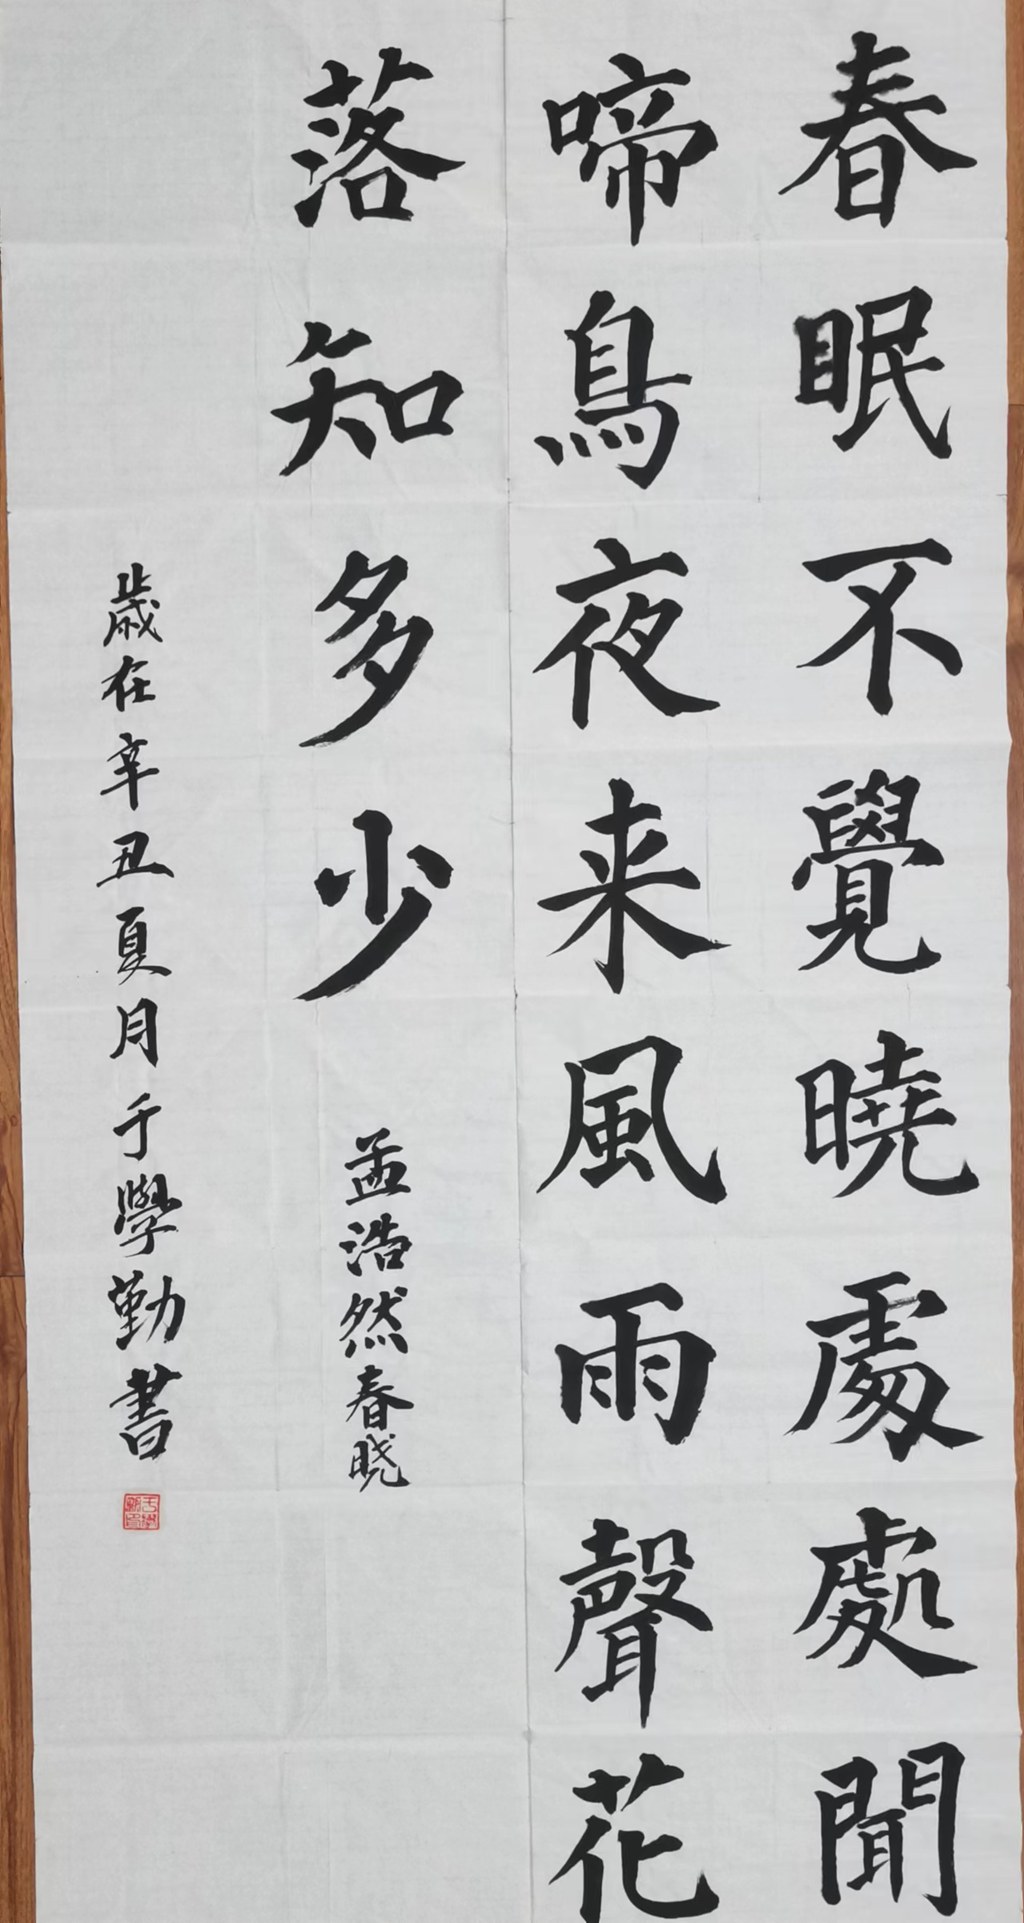 春眠不覺曉處處聞
啼鳥夜来風雨聲花
落知多少
孟浩然春晓
歲在辛丑夏月于學勤書